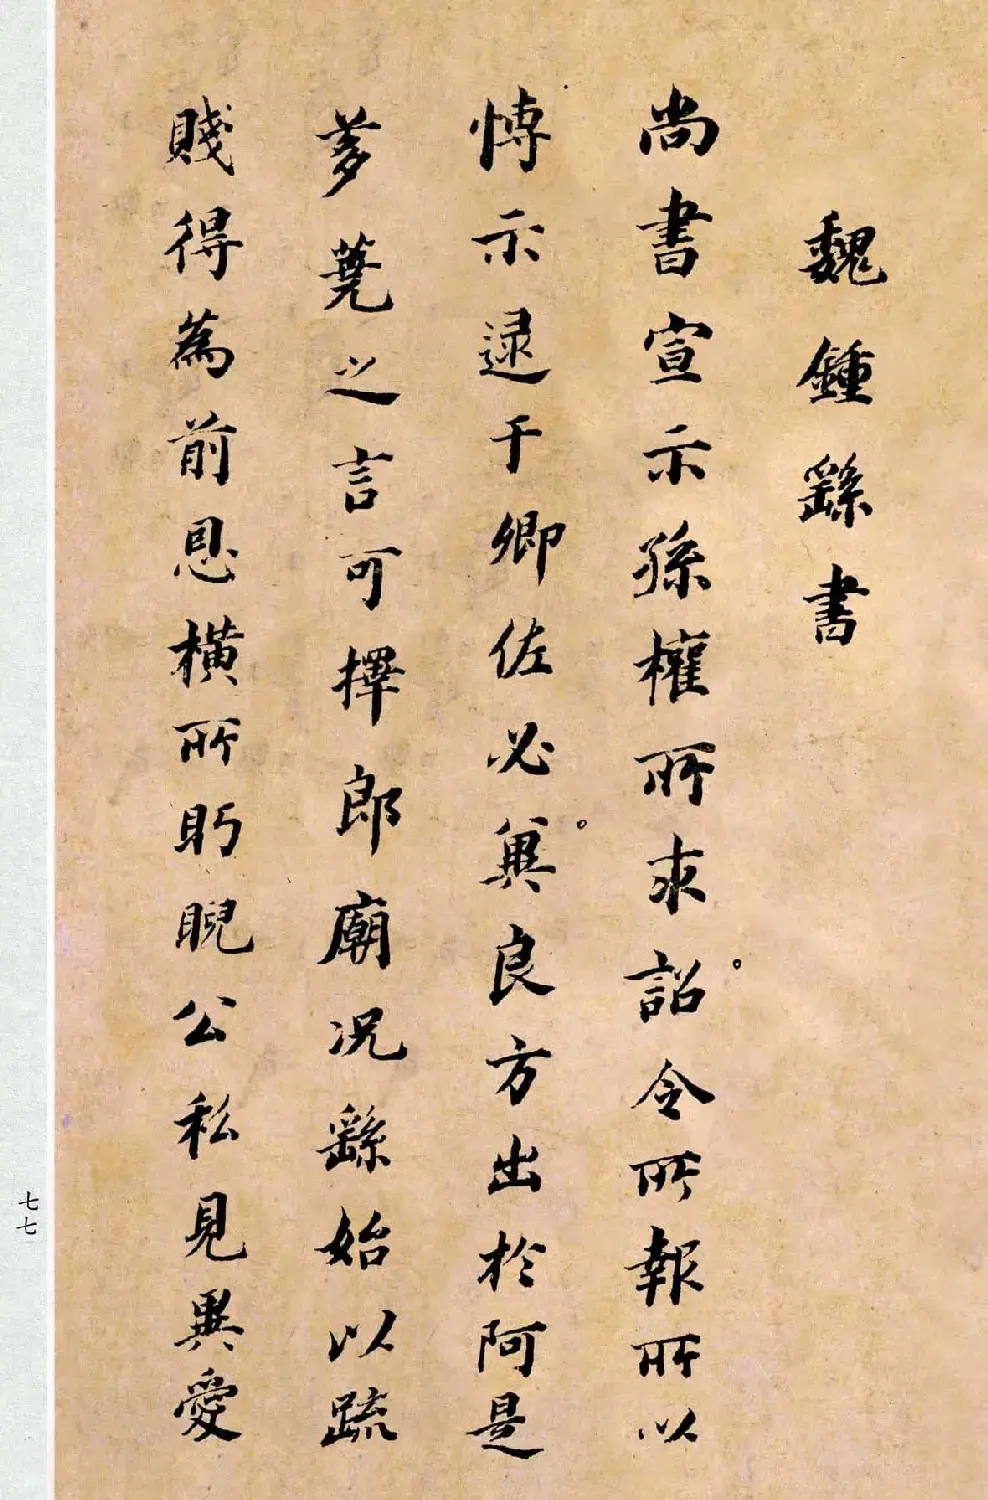 魏鍾繇書
尚書宣示孫權所求詔令所報所以
愽示逮于卿佐必兾良方出於阿是
芻蕘之言可擇郎廟况繇始以疏
賤得為前恩橫所眄睨公私見異愛
七七